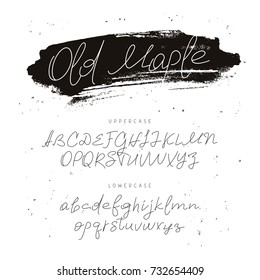 Old Maple
UPPERCASE
ABCDEFGHIJKLMN
OPQRSTUVWXYZ
LOWERCASE
abcdefghijklmn
opqrstuvwxyz
shutterstock.com · 732654409